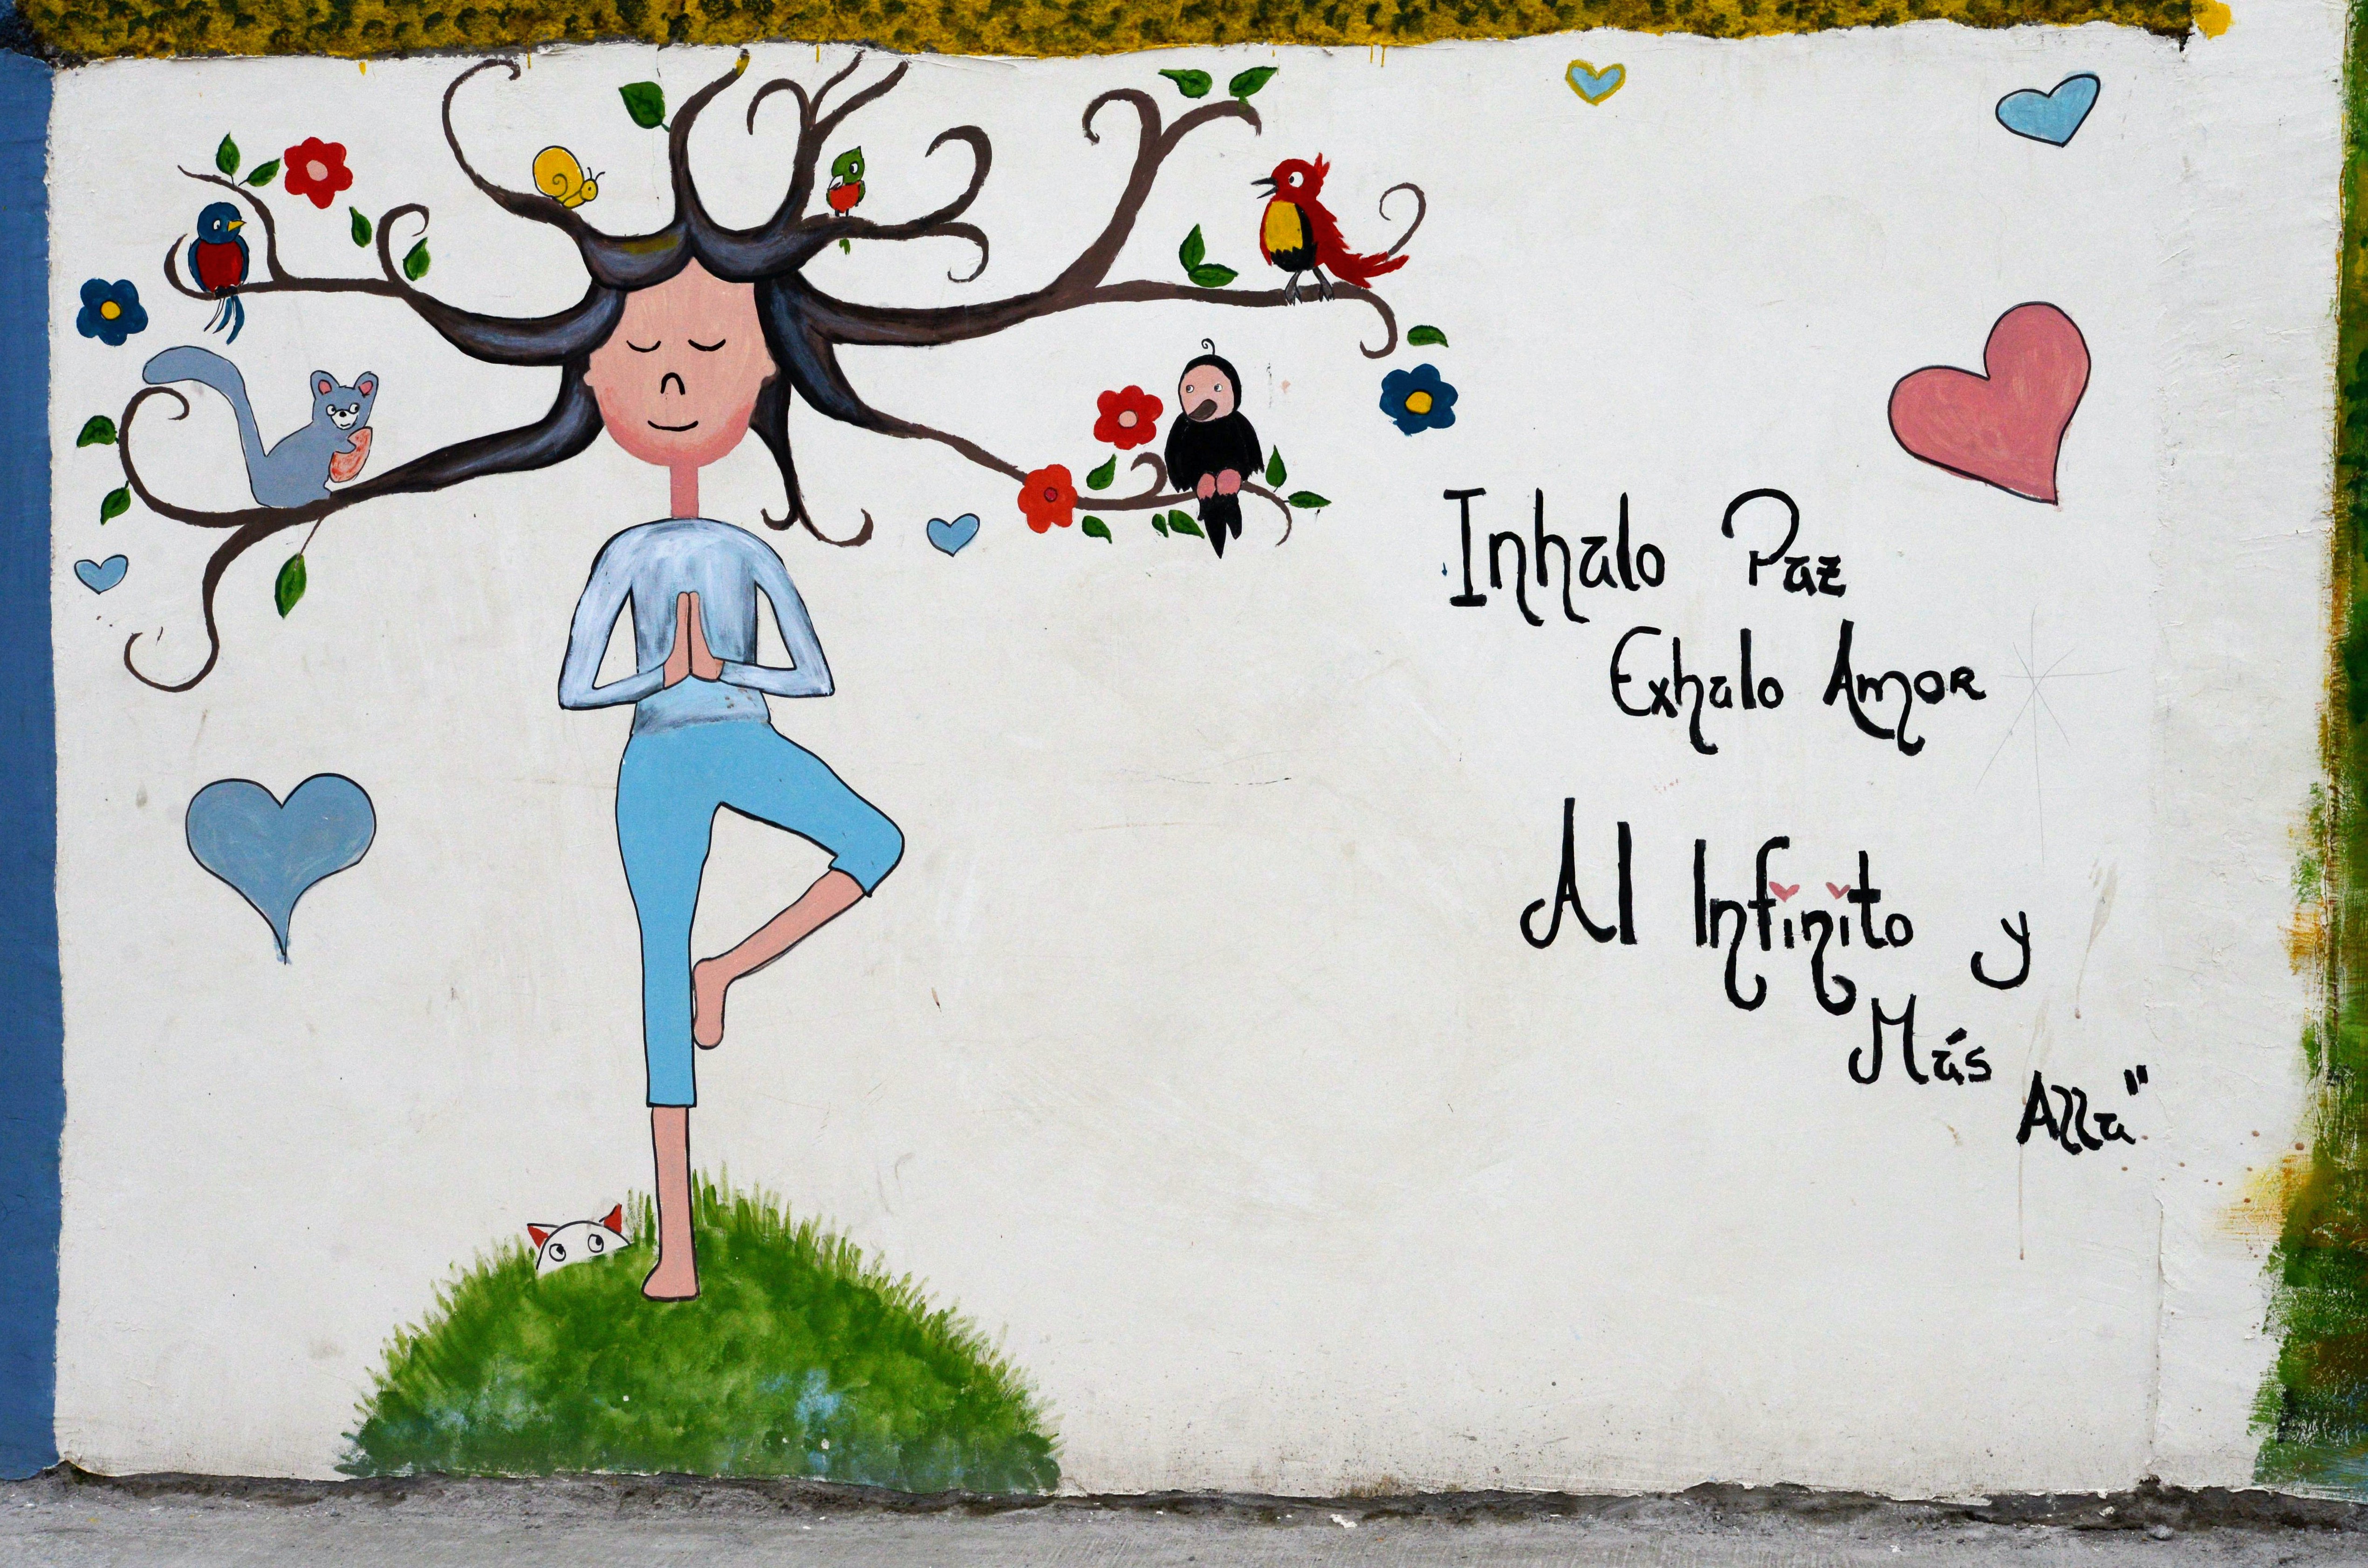 Inhalo Paz
Exhalo Amor
Al Infinito y
Más
Alla"